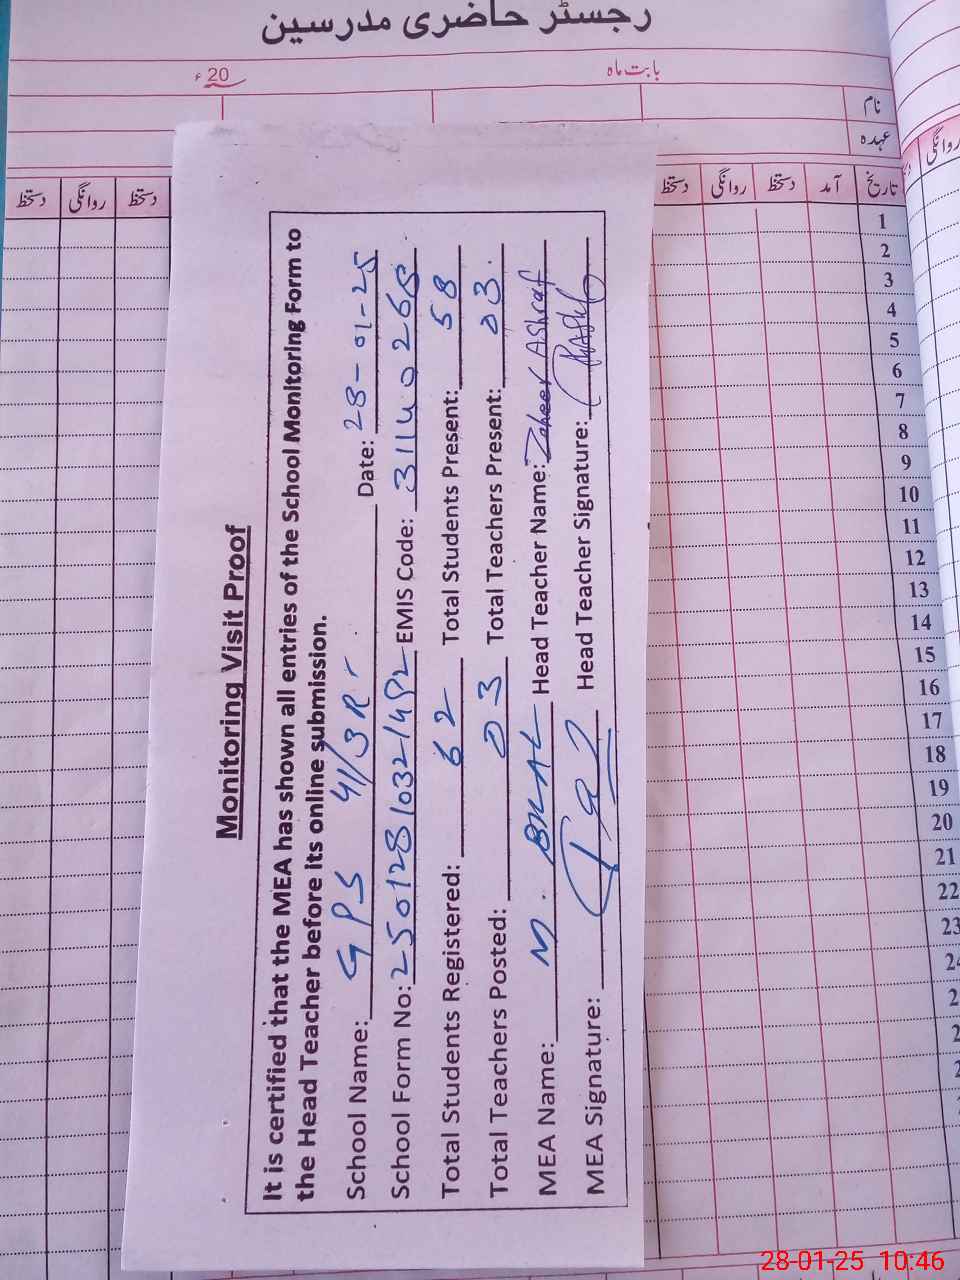 رجسٹر حاضری مدرسین
بابت ماہ 20ء
نام
عہدہ
تاریخ آمد دستخط روانگی دستخط
دستخط روانگی دستخط
روانگی
1
2
3
4
5
6
7
8
9
10
11
12
13
14
15
16
17
18
19
20
21
22
23
Monitoring Visit Proof
It is certified that the MEA has shown all entries of the School Monitoring Form to
the Head Teacher before its online submission.
School Name: GPS 41/3R Date: 28-01-25
School Form No: 25012810321492 EMIS Code: 31140268
Total Students Registered: 62 Total Students Present: 58
Total Teachers Posted: 03 Total Teachers Present: 03.
MEA Name: M. BILAL Head Teacher Name: Zaheer Ashraf
MEA Signature: Head Teacher Signature:
28-01-25 10:46